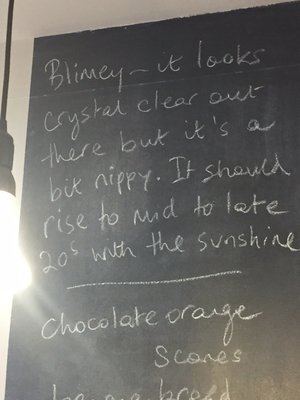 Blimey - it looks
crystal clear out
there but it's a
bit nippy. It should
rise to mid to late
20s with the sunshine
Chocolate orange
Scones
bread